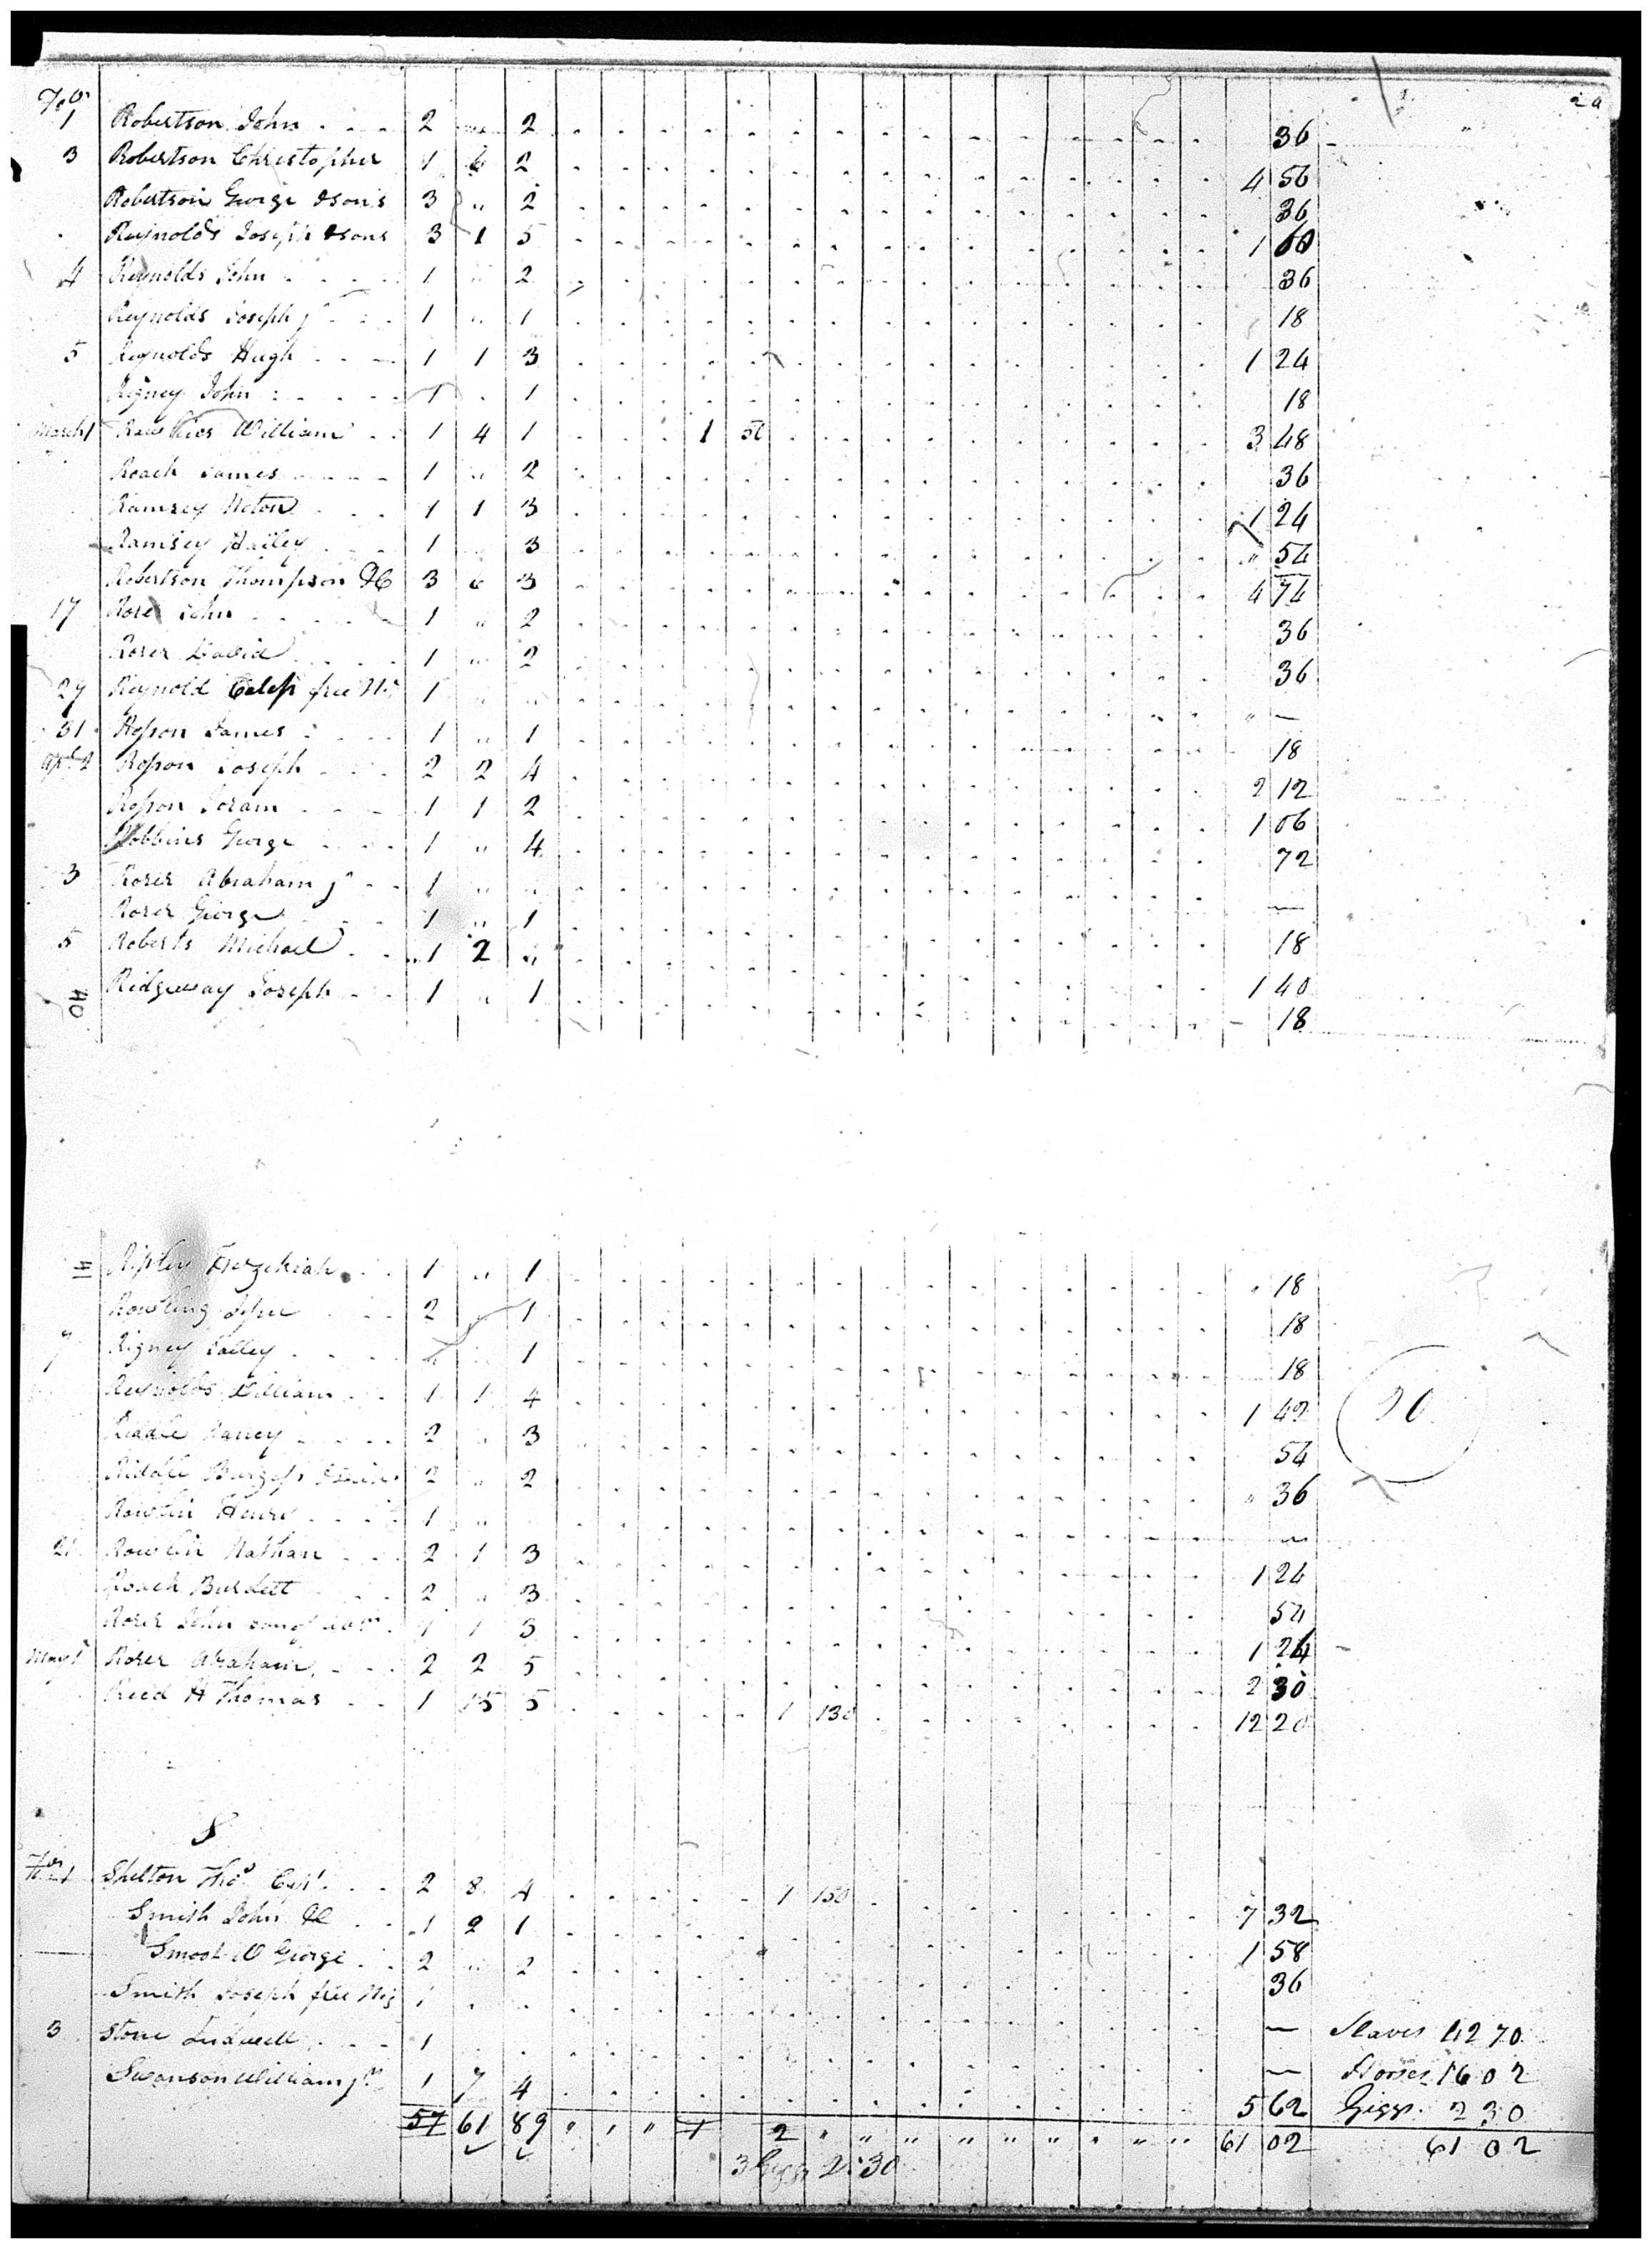 20
Feb
1 Robertson John 2 " 2 36
3 Robertson Christopher 1 6 2 4 56
Robertson George & sons 3 " 2 36
Reynolds Joseph & sons 3 1 5 1 60
4 Reynolds John 1 " 2 36
Reynolds Joseph jr 1 " 1 18
5 Reynolds Hugh 1 1 3 1 24
Rigney John 1 1 18
March 1 William 1 4 1 1 50 3 48
Roach James 1 " 2 36
Ramsey 1 1 3 1 24
Ramsey Hailey 1 3 " 54
Robertson Thompson 3 6 3 4 74
17 Rorer John 1 " 2 36
Rorer David 1 " 2 36
29 Reynold Caleb free Ng 1 " " " —
31 Rosson James 1 " 1 18
Apl 2 Rosson Joseph 2 2 4 2 12
Rosson Joram 1 1 2 1 06
Robbins George 1 " 4 72
3 Rorer Abraham jr 1 " " —
Rorer George 1 " 1 18
5 Roberts Michael 1 2 " 1 40
40 Ridgeway Joseph 1 " 1 18
41 Ripley Hezekiah 1 " 1 " 18
2 1 18
7 Rigney 1 18
Reynolds William 1 1 4 1 42
Riddle Nancy 2 3 54
Riddle Burgess 2 " 2 " 36
Rowlin Henry 1 " —
21 Rowlin Nathan 2 1 3 1 24
Roach Burdett 2 " 3 54
Rorer John son of Abm 1 1 3 1 24
May 1 Rorer Abraham 2 2 5 2 30
Reed H Thomas 1 15 5 1 130 12 20
20
S
Feb 1 Shelton Thos Capt 2 8 4 1 150 7 32
Smith John 1 2 1 1 58
Smoot W George 2 " 2 36
Smith Joseph free Neg 1 —
3 Stone Ludwell 1 — Slaves 42 70
Swanson William jr 1 7 4 5 62 Horses 16 02
Giggs 2 30
57 61 89 " " " 1 2 " " " " " " " " " 61 02 61 02
3 Giggs 2:30